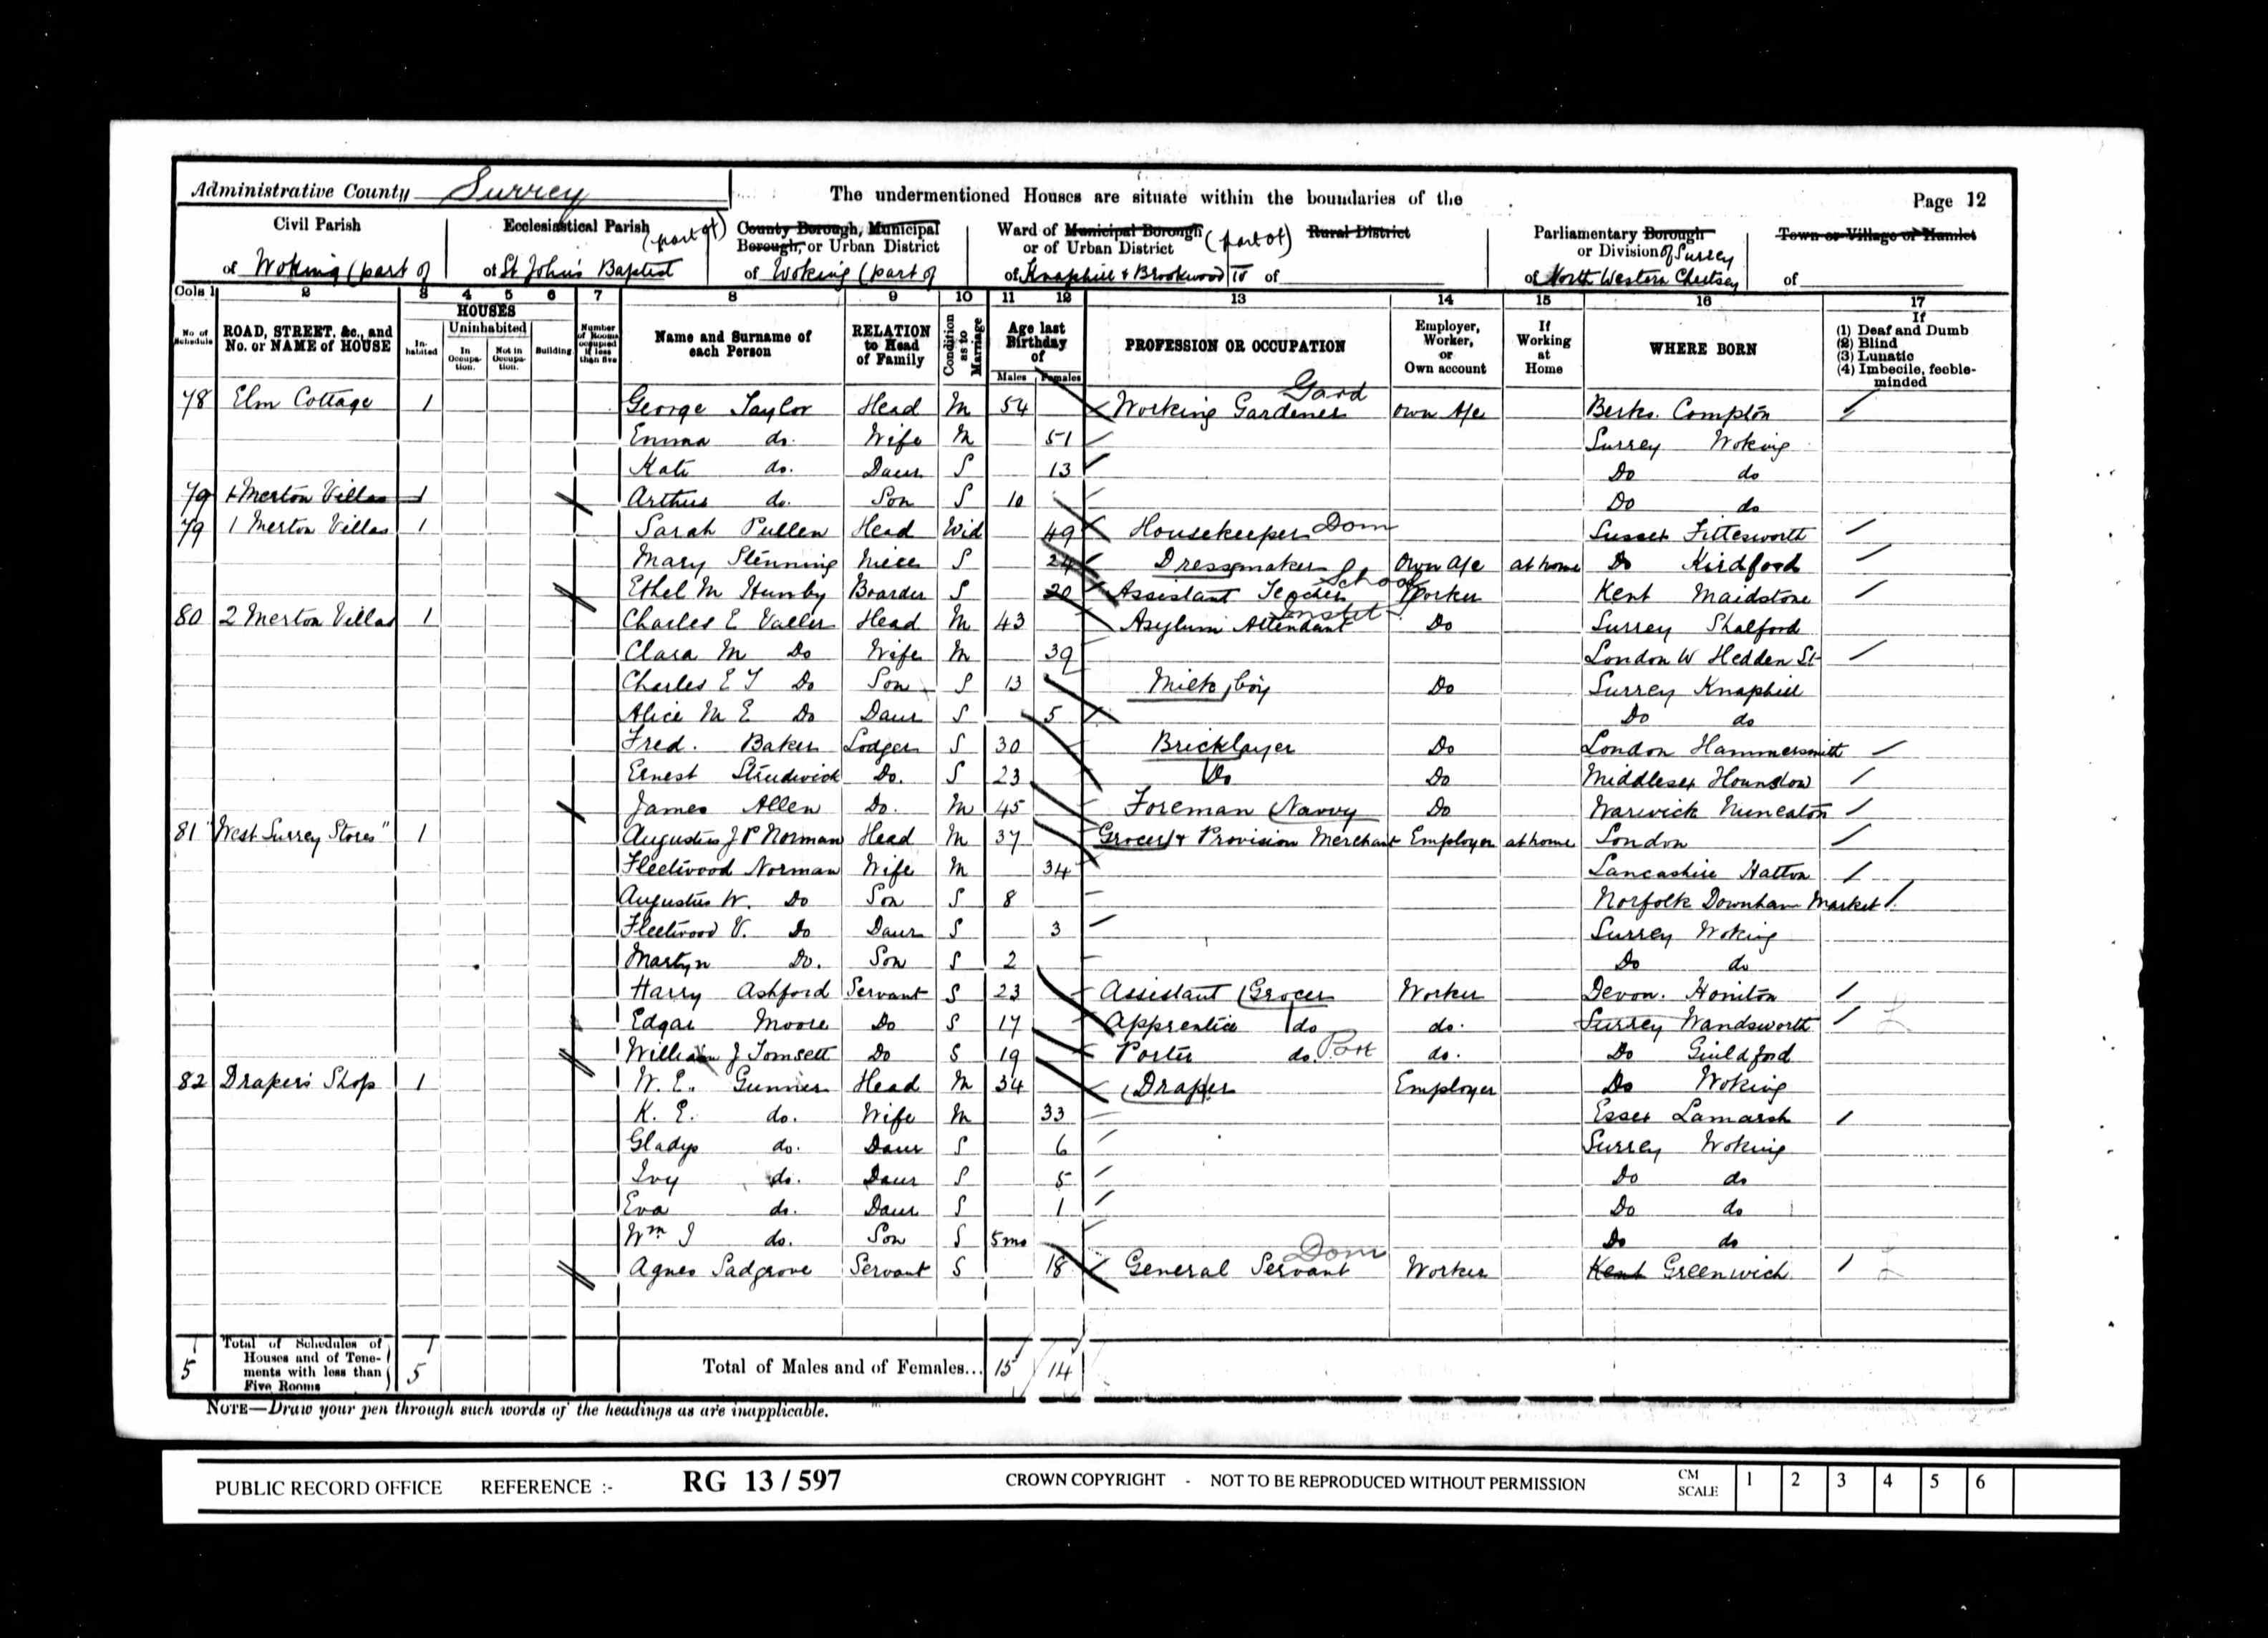 Administrative County Surrey
The undermentioned Houses are situate within the boundaries of the
Page 12
Civil Parish
of Woking (part of
Ecclesiastical Parish (part of)
of St John's Baptist
County Borough, Municipal Borough, or Urban District
of Woking (part of
Ward of Municipal Borough or of Urban District (part of)
of Knaphill & Brookwood IV
Rural District
of
Parliamentary Borough or Division of Surrey
of North Western Chertsey
Town or Village or Hamlet
of
Cols 1 2 3 4 5 6 7 8 9 10 11 12 13 14 15 16 17
No. of Schedule
ROAD, STREET, &c., and No. or NAME of HOUSE
HOUSES
Inhabited
Uninhabited
In Occupation.
Not in Occupation.
Building
Number of Rooms occupied if less than five
Name and Surname of each Person
RELATION to Head of Family
Condition as to Marriage
Age last Birthday of
Males Females
PROFESSION OR OCCUPATION
Employer, Worker, or Own account
If Working at Home
WHERE BORN
If
(1) Deaf and Dumb
(2) Blind
(3) Lunatic
(4) Imbecile, feeble-minded
78 Elm Cottage 1 George Taylor Head M 54 Working Gardener Gard own A/c Berks. Compton
Emma do. Wife M 51 Surrey Woking
Kate do. Daur S 13 Do do
79 1 Merton Villas 1 Arthur do. Son S 10 Do do
79 1 Merton Villas 1 Sarah Pullen Head Wid 49 Housekeeper Dom Sussex Fittesworth
Mary Stenning Niece S 24 Dressmaker Own A/c at home Do Kirdford
Ethel M Humby Boarder S 20 Assistant Teacher School Worker Kent Maidstone
80 2 Merton Villas 1 Charles E Valler Head M 43 Asylum Attendant Instit Do Surrey Shalford
Clara M Do Wife M 39 London W Hedden St
Charles E T Do Son S 13 Milk boy Do Surrey Knaphill
Alice M E Do Daur S 5 Do do
Fred. Baker Lodger S 30 Bricklayer Do London Hammersmith
Ernest Strudwick Do. S 23 Do Do Middlesex Hounslow
James Allen Do. M 45 Foreman (Navvy Do Warwick Nuneaton
81 "West Surrey Stores" 1 Augustus J P Norman Head M 37 Grocer & Provision Merchant Employer at home London
Fleetwood Norman Wife M 34 Lancashire Hatton
Augustus W. Do Son S 8 Norfolk Downham Market
Fleetwood V. Do Daur S 3 Surrey Woking
Martyn Do. Son S 2 Do do
Harry Ashford Servant S 23 Assistant (Grocer Worker Devon. Honiton
Edgar Moore Do S 17 Apprentice do do. Surrey Wandsworth
William J Tomsett Do S 19 Porter do. Port do. Do Guildford
82 Drapers Shop 1 W. E. Gunner Head M 34 Draper Employer Do Woking
K. E. do. Wife M 33 Essex Lamarsh
Gladys do. Daur S 6 Surrey Woking
Ivy do. Daur S 5 Do do
Eva do. Daur S 1 Do do
Wm J do. Son S 5mo Do do
Agnes Sadgrove Servant S 18 General Servant Dom Worker Kent Greenwich
5 Total of Schedules of Houses and of Tenements with less than Five Rooms 5
Total of Males and of Females... 15 14
NOTE—Draw your pen through such words of the headings as are inapplicable.
PUBLIC RECORD OFFICE REFERENCE :- RG 13 / 597 CROWN COPYRIGHT - NOT TO BE REPRODUCED WITHOUT PERMISSION CM SCALE 1 2 3 4 5 6